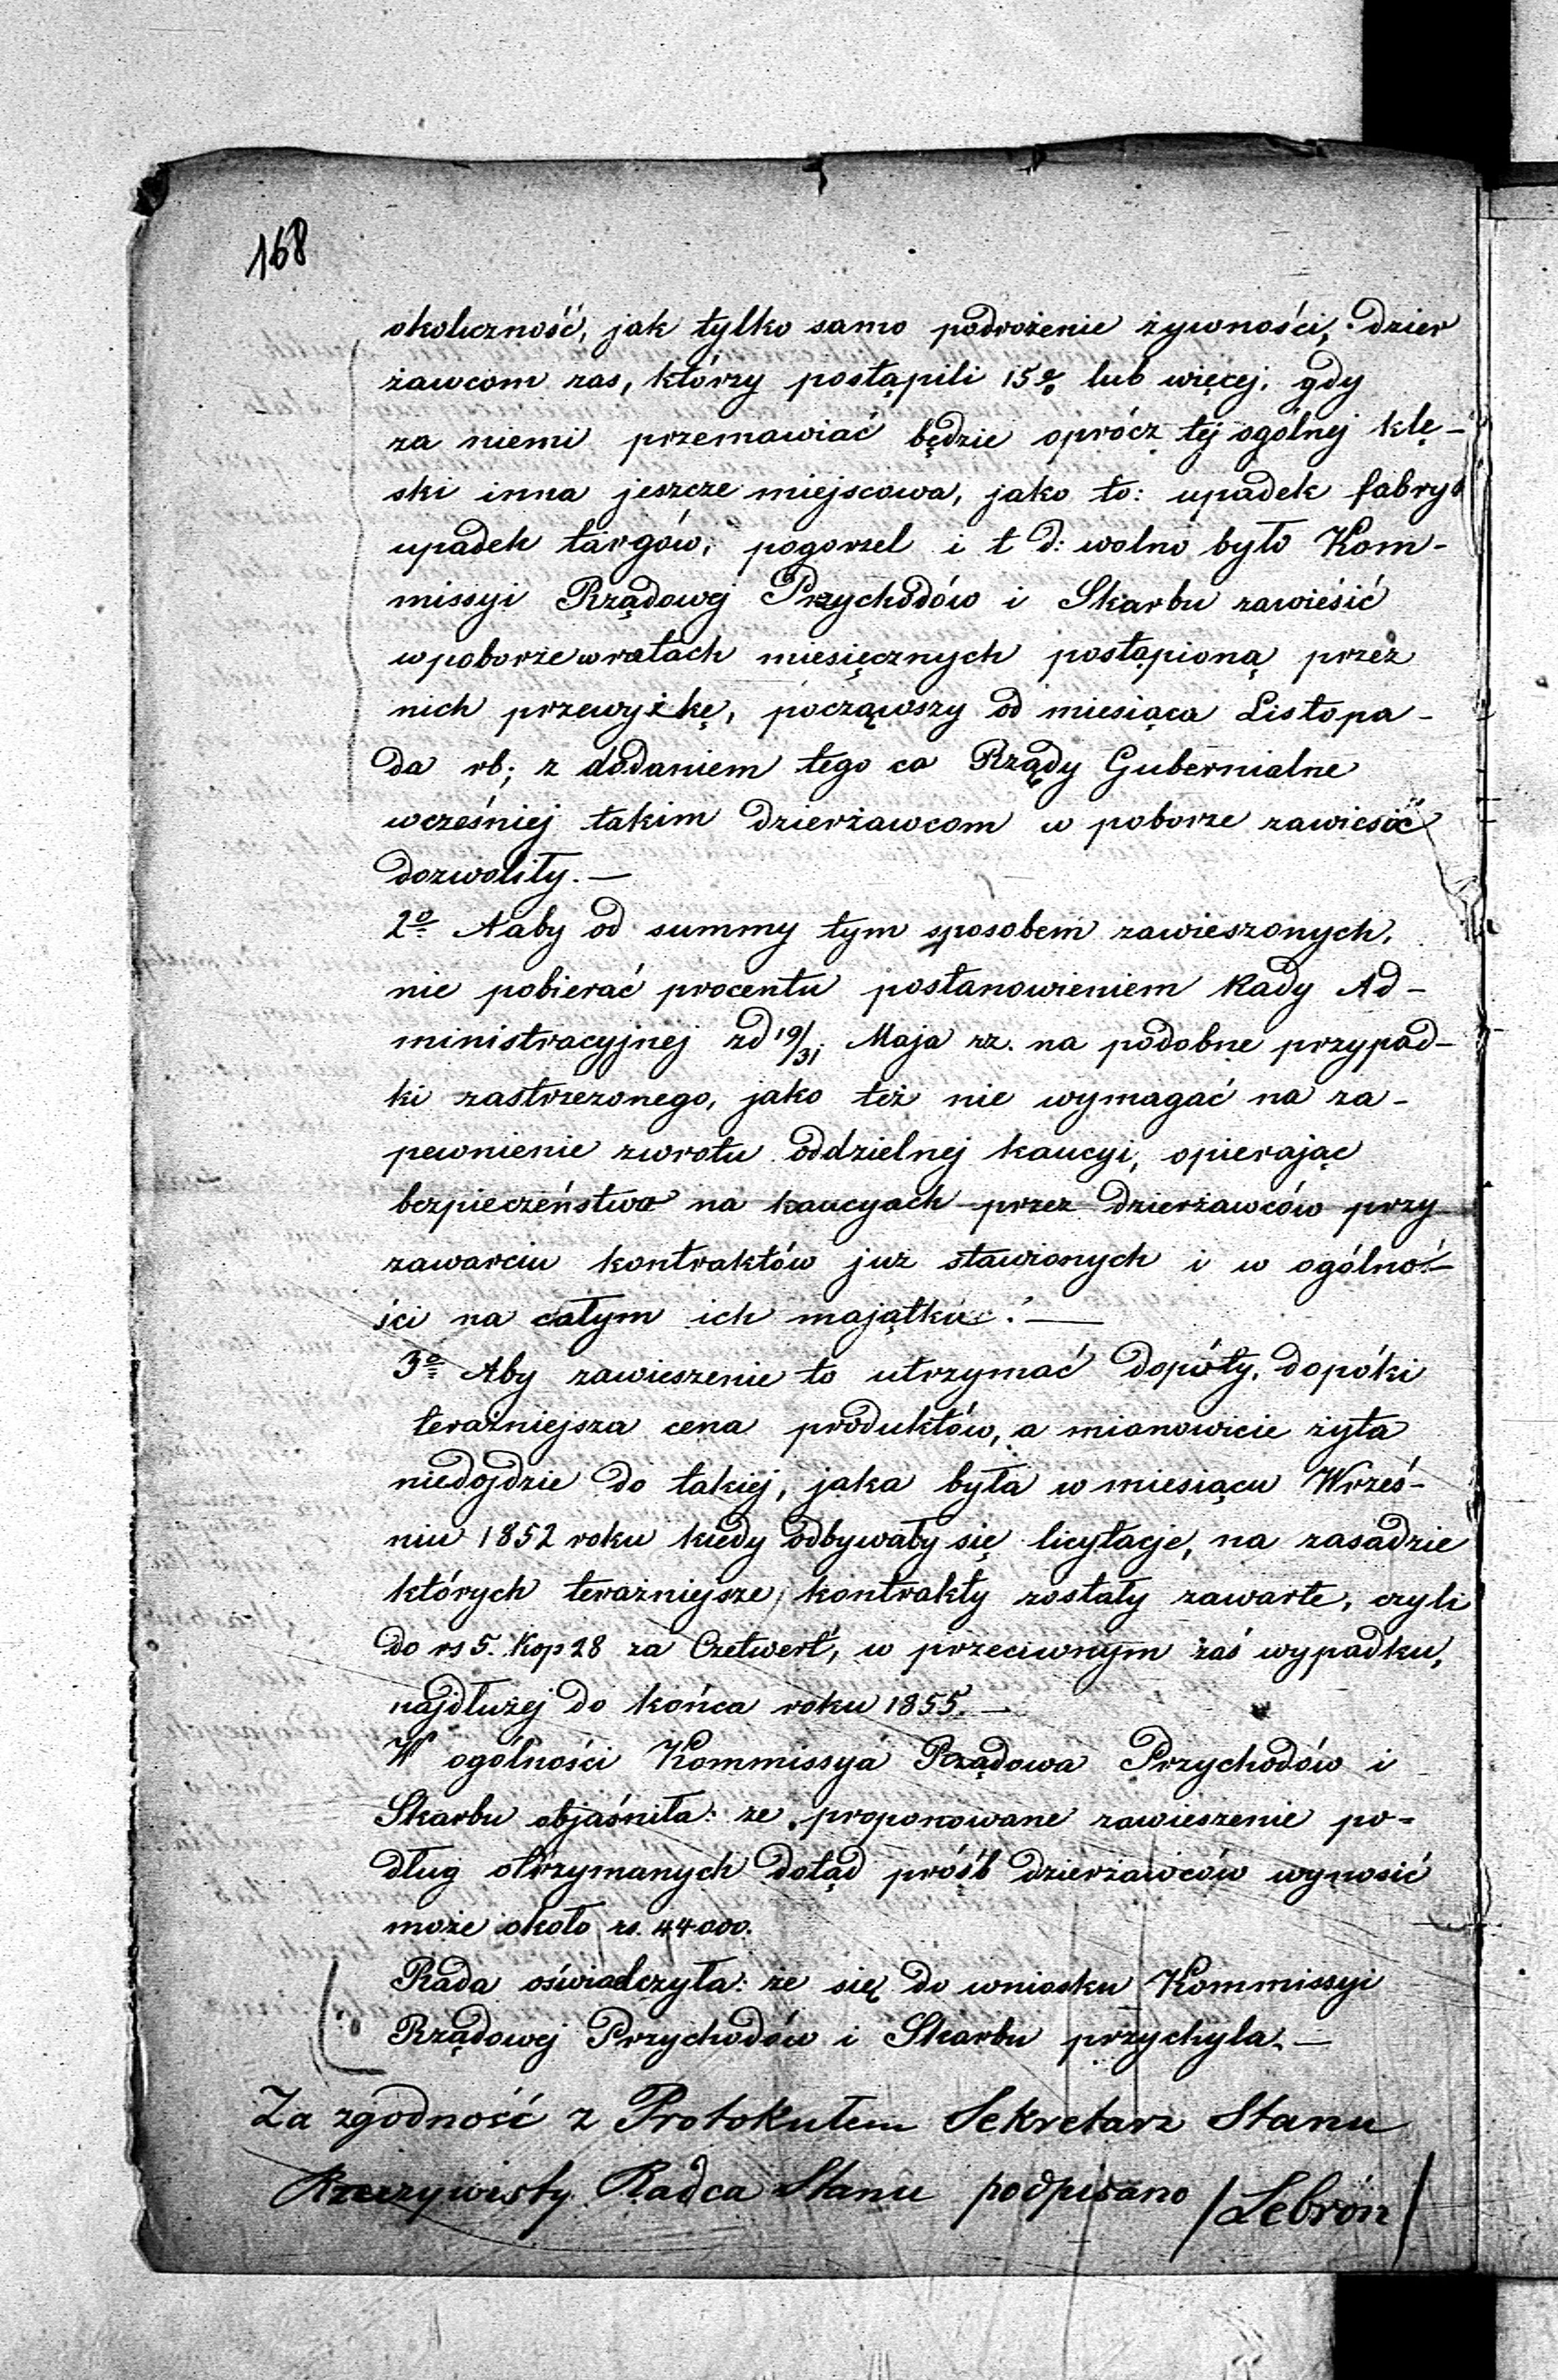 168
okoliczność, jak tylko samo podrożenie żywności, dzier
żawcom zas, którzy postąpili 15% lub więcej, gdy
za niemi przemawiać będzie oprócz tej ogólnej klę-
ski inna jeszcze miejscowa, jako to: upadek fabryk
upadek targów, pogorzel i t d: wolno było Kom-
missyi Rządowej Przychodów i Skarbu zawieśić
w poborze w ratach miesięcznych postąpioną przez
nich przewyżkę, począwszy od miesiąca Listopa-
da rb; z dodaniem tego co Rządy Gubernialne
wcześniej takim dzierżawcom w poborze zawiesić
dozwoliły. —
2º Aaby od summy tym sposobem zawieszonych,
nie pobierać procentu postanowieniem Rady Ad-
ministracyjnej zd 19/31 Maja rz. na podobne przypad-
ki zastrzezonego, jako też nie wymagać na za-
pewnienie zwrotu oddzielnej kaucyi, opierając
bezpieczeństwo na kaucyach przez dzierżawców przy
zawarciu kontraktów juz stawionych i w ogólno-
ści na całym ich majątku. —
3º Aby zawieszenie to utrzymać dopóty, dopóki
teraźniejsza cena produktów, a mianowicie żyta
niedojdzie do takiej, jaka była w miesiącu Wrześ-
niu 1852 roku kiedy odbywały się licytacje, na zasadzie
których teraźniejsze kontrakty zostały zawarte, czyli
do rs 5. Kop 28 za Czetwert, w przeciwnym zaś wypadku,
najdłużej do końca roku 1855. —
W ogólności Kommissya Rządowa Przychodów i
Skarbu objaśniła: ze proponowane zawieszenie po-
dług otrzymanych dotąd próśb dzierżawców wynosić
może około rs. 44000.
Rada oświadczyła: że się do wniosku Kommissyi
Rządowej Przychodów i Skarbu przychyla. —
Za zgodność z Protokułem Sekretarz Stanu
Rzeczywisty Radca Stanu podpisano /Lebrón/